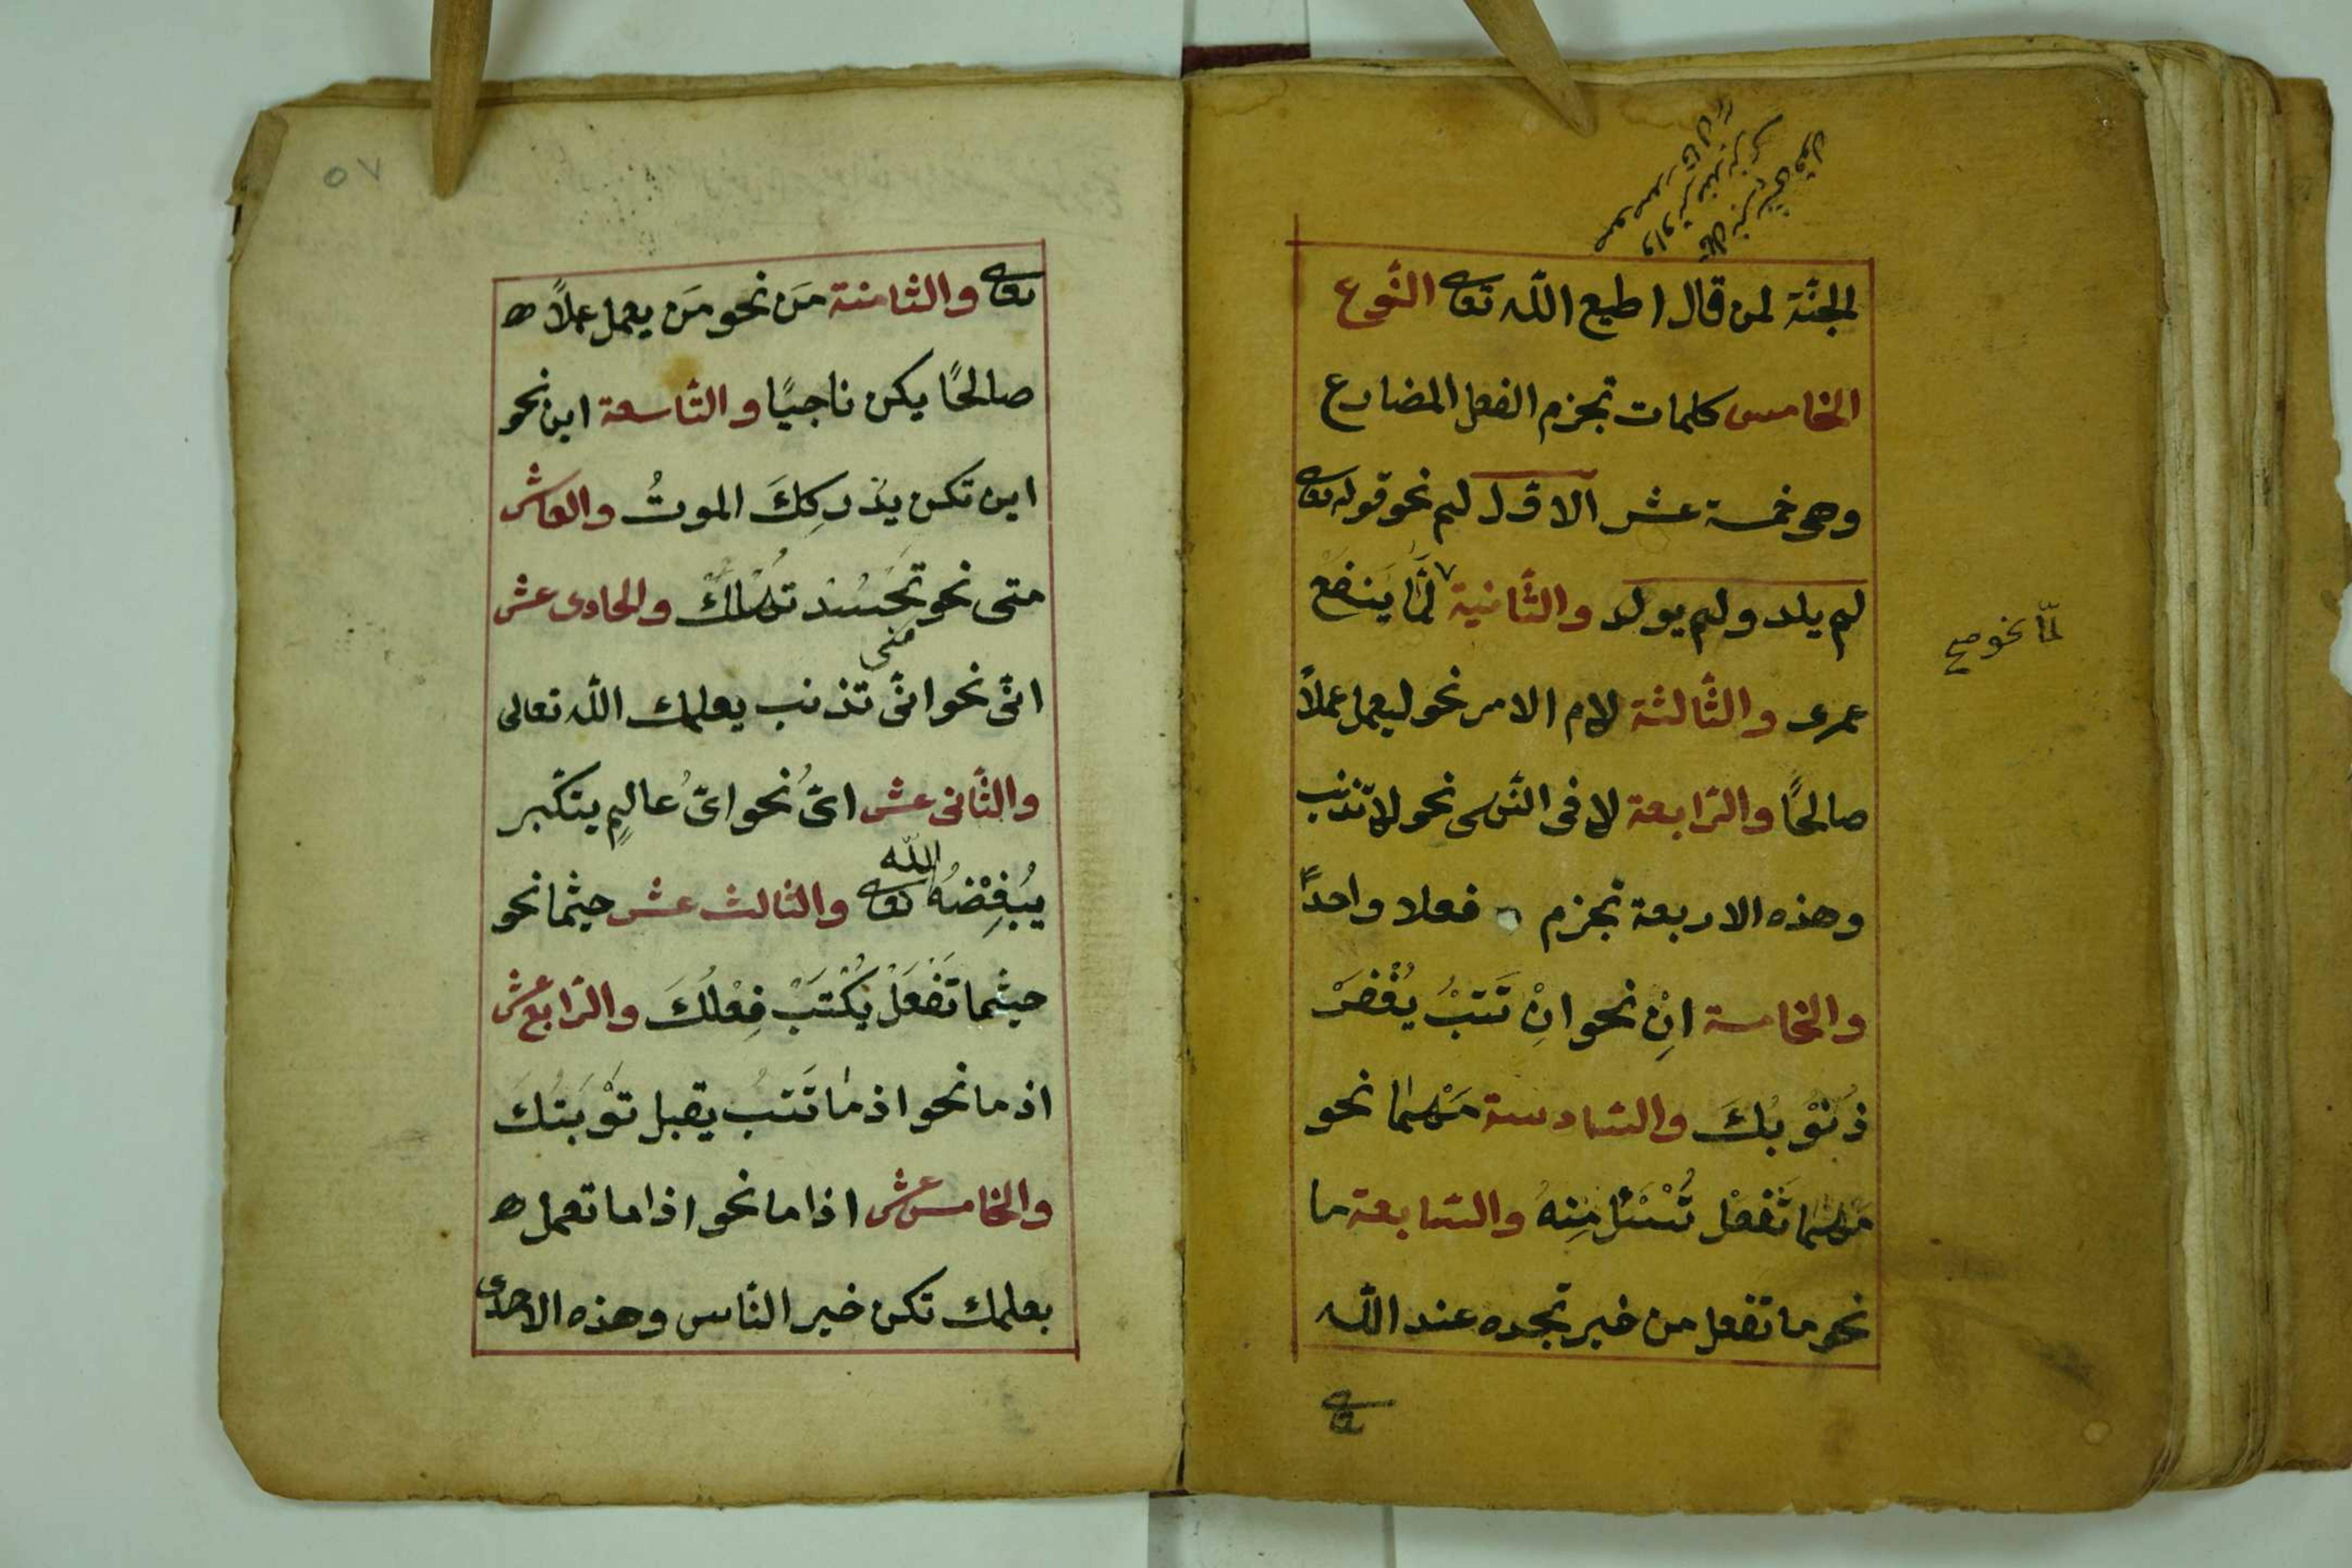 الجنّة لمن قال اطيع اللّه تعا النّوع
الخامس كلمات تجزم الفعل المضارع
وهى خمسة عشر الاوّل لم نحو قوله تعا
لم يلد ولم يولد والثّانية لمّا يَنفَعْ
عمرى والثّالثة لام الامر نحو ليعمل عملاً
صالحًا والرّابعة لا فى النّهى نحو لا تذنب
وهذه الاربعة تجزم فعلا واحداً
والخامسة اِنْ نحو اِنْ تَتبْ يُغْفَرْ
ذُنُوْبُكَ والسّادسة مَهْمَا نحو
مَهْمَا تَفْعَلْ تُسْئَلْ مِنهُ والسّابعة ما
نحو ما تفعل من خير تجده عند اللّه
لمّا نحو صح
تعا
٥٧
تعا والثّامنة مَن نحو مَن يعمل عملاً
صالحًا يكن ناجيًا والتّاسعة اين نحو
اين تكن يدْرِكِكَ الموتُ والعاشر
متى نحو متى تَحْسُدْ تَهْلِكْ والحادى عشر
انّى نحو انّى تذنب يعلمك اللّه تعالى
والثّانى عشر اىُّ نحو اىُّ عالِمٍ يتكّبر
يُبْغِضْهُ اللّه تعا والثالث عشر حيثما نحو
حيثما تَفْعَلْ يُكْتَبْ فِعْلُكَ والرّابع عشر
اذ ما نحو اذ ما تَتبْ يقبل تَوْبَتُكَ
والخامس عشر اذا ما نحو اذا ما تعمل
بعلمك تكن خير النّاس وهذه الاحدى